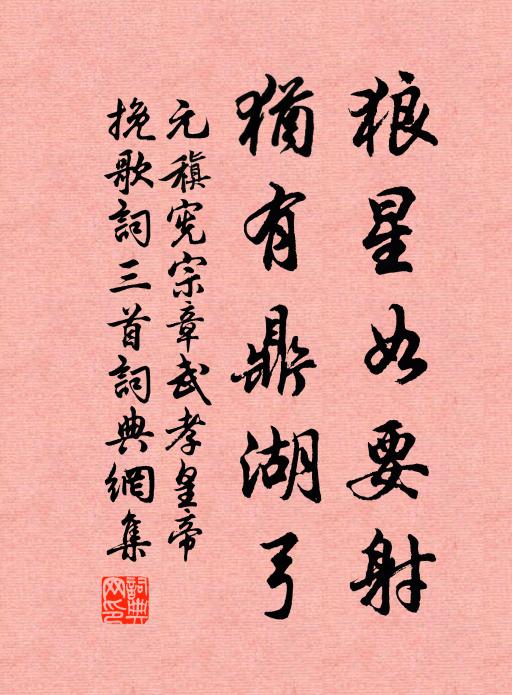 狼星如要射
猶有鼎湖弓
元稹憲宗章武孝皇帝
挽歌詞三首詞典網集
詞典网印